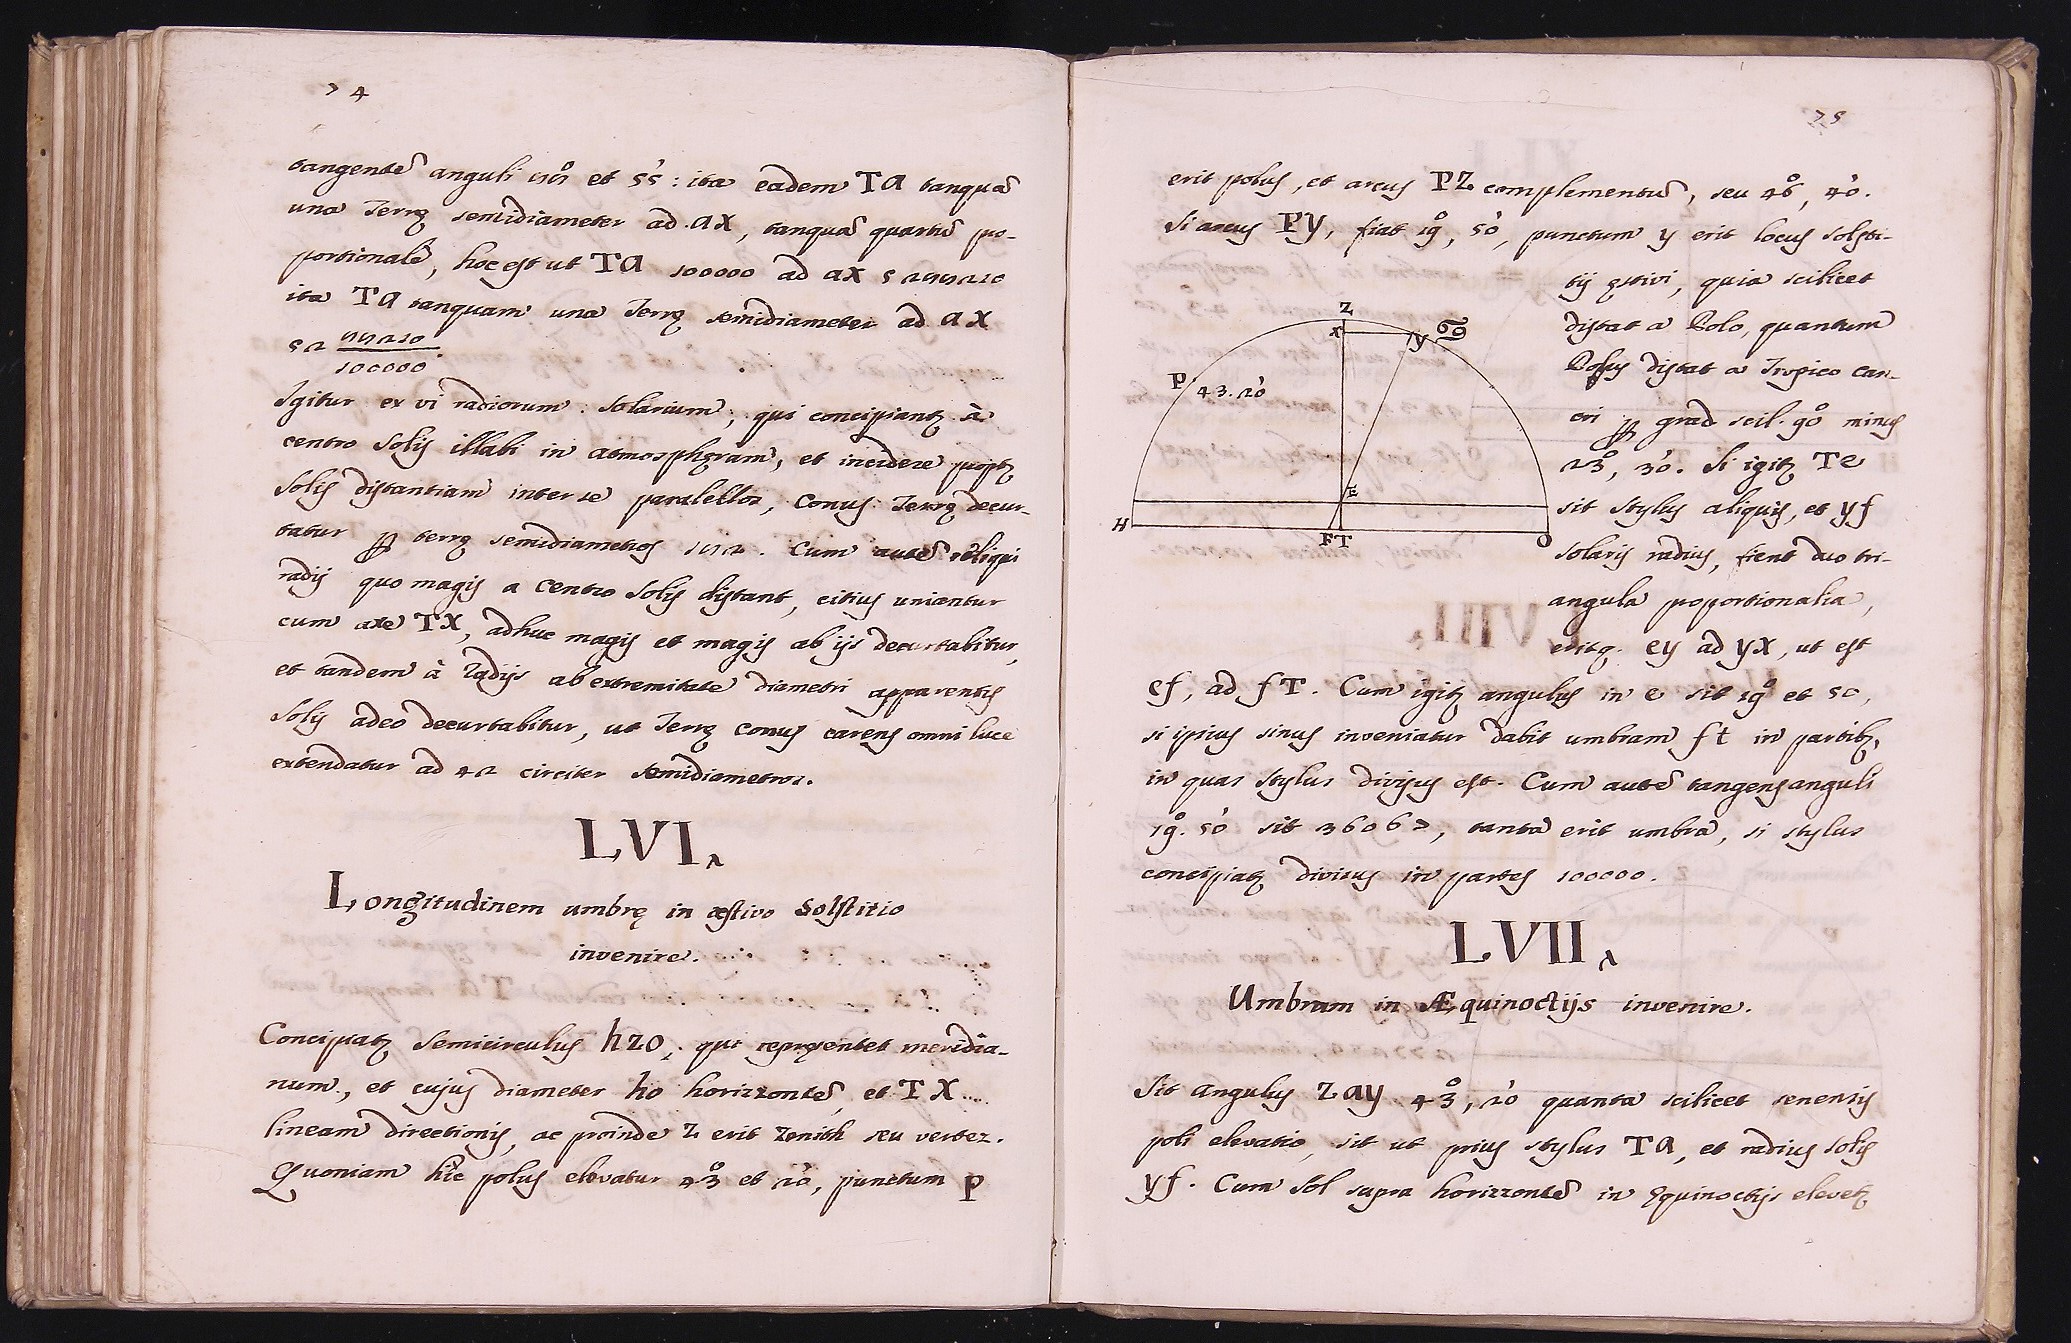 74
tangentē anguli et 55 : ita eadem TA tanquā
una Terrę semidiameter ad AX, tanquā quartū pro-
portionalē, hoc est ut TA 100000 ad AX
ita TA tanquam una Terrę semidiameter ad AX
52
100000.
Igitur ex vi radiorum solarium, qui concipiantʒ à
centro Solis illabi in atmosphęram, et incidere proptʒ
Solis distantiam inter se paralellos, Conus Terrę decur-
tatur terrę semidiametros. Cum autē obliqui
radij quo magis a centro Solis distant, citius uniantur
cum axe TX, adhuc magis et magis ab ijs decurtabitur,
et tandem à radijs ab extremitate diametri apparentis
Solis adeo decurtabitur, ut Terrę conus carens omni luce
extendatur ad 42 circiter semidiametros.
LVI.
Longitudinem umbrę in æstivo Solstitio
invenire.
Concipiatʒ Semicirculus hzo, qui repręsentet meridia-
num, et cujus diameter ho horizzontē, et TX
lineam directionis, ac proinde Z erit Zenith seu vertex.
Quoniam hîc polus elevatur 43° et 20', punctum P
75
erit polus, et arcus PZ complementū, seu 46°, 40'.
Si arcus Py, fiat 19°, 50', punctum y erit locus solsti-
tij ęstivi, quia scilicet
distat a Polo, quantum
Polus distat a Tropico Can-
cri grad scil. 90 minus
23°, 30'. Si igitʒ Te
sit Stylus aliquis, et yf
solaris radius, fient duo tri-
angula proportionalia,
eritq. ey ad yx, ut est
ef, ad fT. Cum igitʒ angulus in e sit 19° et 50,
si ipsius sinus inveniatur dabit umbram ft in partibʒ,
in quas Stylus divisus est. Cum autē tangens anguli
19°. 50' sit 36067, tanta erit umbra, si stylus
concipiatʒ divisus in partes 100000.
Z
X
y ♋
P
43.20'
E
H
F T
O
LVII.
Umbram in Æquinoctijs invenire.
Sit angulus Zay 43°, 20' quanta scilicet senensis
poli elevatio, sit ut prius stylus TA, et radius Solis
yf. Cum Sol supra horizzontē in ęquinoctijs elevetʒ